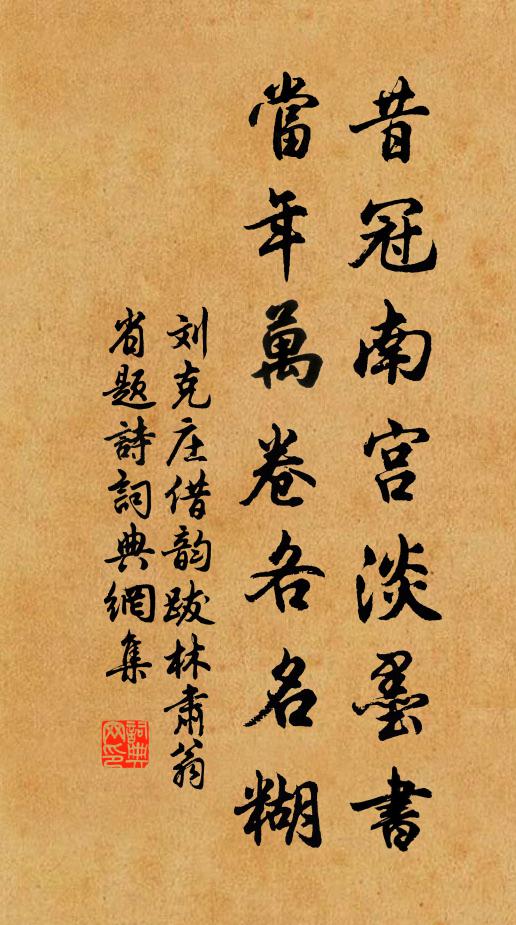 昔冠南宫淡墨書
當年萬卷各名糊
刘克庄借韵跋林肅翁
省题詩詞典網集
詞典
网印